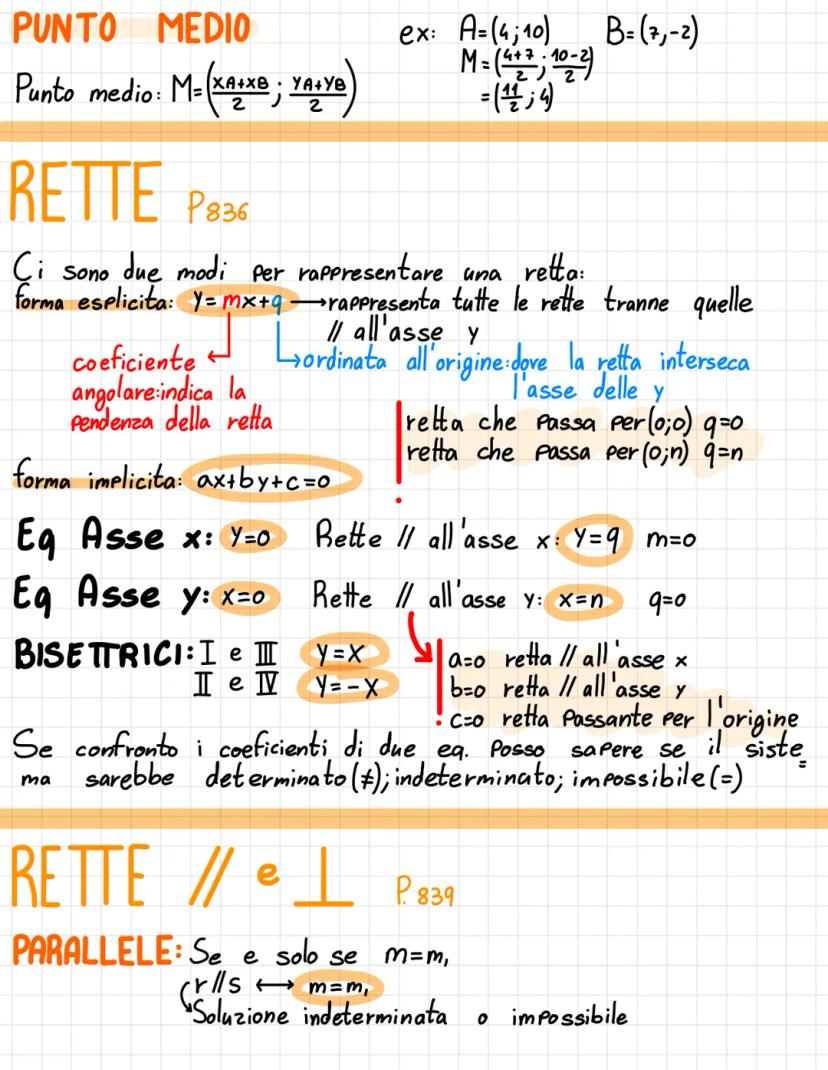 PUNTO MEDIO
ex: A=(4;10) B=(7,-2)
M=(4+7/2; 10-2/2)
=(11/2;4)
Punto medio: M=(XA+XB/2; YA+YB/2)
RETTE P836
Ci sono due modi per rappresentare una retta:
forma esplicita: y=mx+q →rappresenta tutte le rette tranne quelle
// all'asse y
coeficiente
angolare:indica la
pendenza della retta
ordinata all'origine:dove la retta interseca
l'asse delle y
retta che passa per(0;0) q=0
retta che passa per(0;n) q=n
forma implicita: ax+by+c=0
Eq Asse x: y=0 Rette // all'asse x: y=q m=0
Eq Asse y: x=0 Rette // all'asse y: x=n q=0
BISETTRICI: I e III y=x
II e IV y=-x
a=0 retta // all'asse x
b=0 retta // all'asse y
c=0 retta passante per l'origine
Se confronto i coeficienti di due eq. posso sapere se il siste=
ma sarebbe determinato(≠);indeterminato; impossibile(=)
RETTE // e ⊥ P. 839
PARALLELE: Se e solo se m=m₁
r//s ↔ m=m₁
Soluzione indeterminata o impossibile